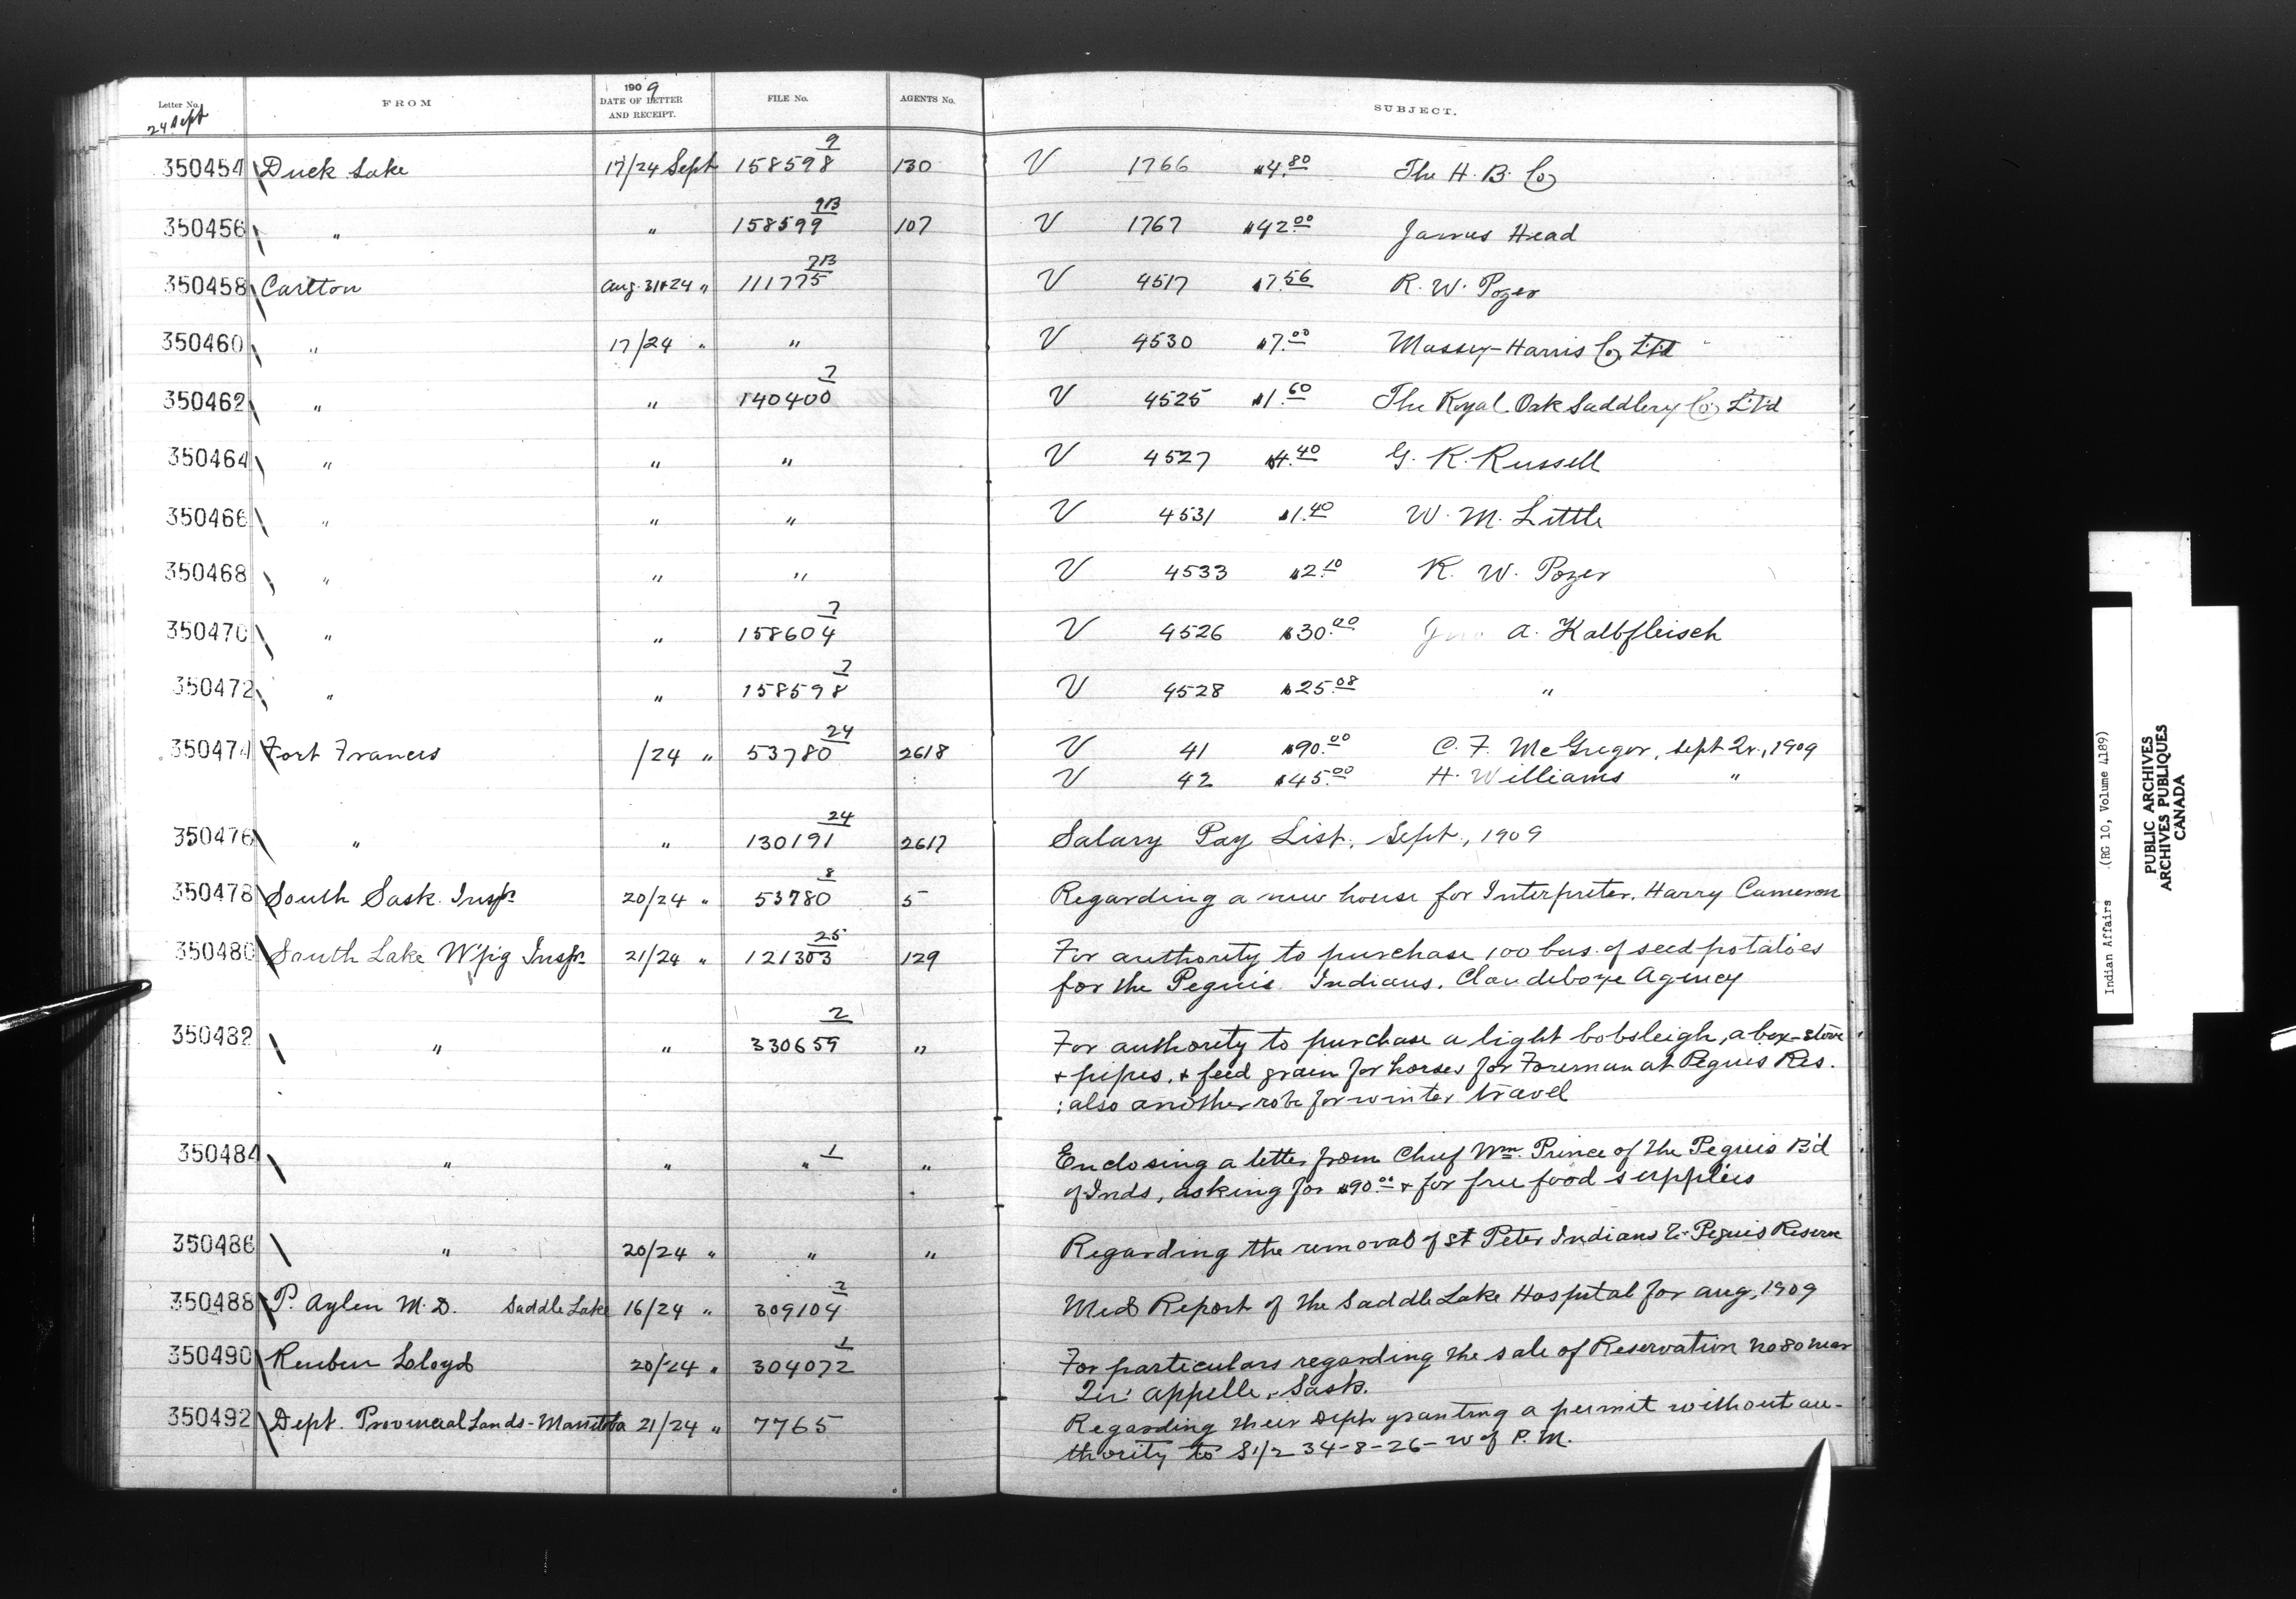 Letter No. FROM 1909 DATE OF LETTER AND RECEIPT. FILE No. AGENTS No. SUBJECT.
24 Sept
350454 Duck Lake 17/24 Sept 158598 9 130 V 1766 $4.80 The H. B. Co
350456 " " 158599 9B 107 V 1767 $42.00 James Head
350458 Carlton Aug. 31+24 " 111775 7B V 4517 $7.56 R. W. Pozer
350460 " 17/24 " " V 4530 $7.00 Massey-Harris Co. Lt'd
350462 " " 140400 7 V 4525 $1.60 The Royal Oak Saddlery Co. Lt'd
350464 " " " V 4527 $4.40 G. K. Russell
350466 " " " V 4531 $1.40 W. M. Little
350468 " " " V 4533 $2.10 R. W. Pozer
350470 " " 158604 7 V 4526 $30.00 A. Kalbfleisch
350472 " " 158598 7 V 4528 $25.08 "
350474 Fort Frances /24 " 53780 24 2618 V 41 $90.00 C. F. McGregor, Sept Qr., 1909
V 42 $45.00 H. Williams "
350476 " " 130191 24 2617 Salary Pay List, Sept, 1909
350478 South Sask. Insp. 20/24 " 53780 8 5 Regarding a new house for Interpreter, Harry Cameron
350480 South Lake W'pig Insp. 21/24 " 121303 25 129 For authority to purchase 100 bus. of seed potatoes
for the Peguis Indians. Clandeboye Agency
350482 " " 330659 2 " For authority to purchase a light bobsleigh, a box-stove
+ pipes, + feed grain for horses for Foreman at Peguis Res.
; also another robe for winter travel
350484 " " " 1 " Enclosing a letter from Chief Wm. Prince of the Peguis B'd
of Inds, asking for $90.00 + for free food supplies
350486 " 20/24 " " " Regarding the removal of St Peter Indians to Peguis Reserve
350488 P. Aylen M.D. Saddle Lake 16/24 " 309104 2 Med Report of the Saddle Lake Hospital for Aug, 1909
350490 Reuben Lloyd 20/24 " 304072 1 For particulars regarding the sale of Reservation No 80 near
Qu'Appelle, Sask.
350492 Dept. Provincial Lands-Manitoba 21/24 " 7765 Regarding their Dept granting a permit without au-
thority to S1/2 34-8-26-W of P. M.
Indian Affairs (RG 10, Volume 4189)
PUBLIC ARCHIVES
ARCHIVES PUBLIQUES
CANADA